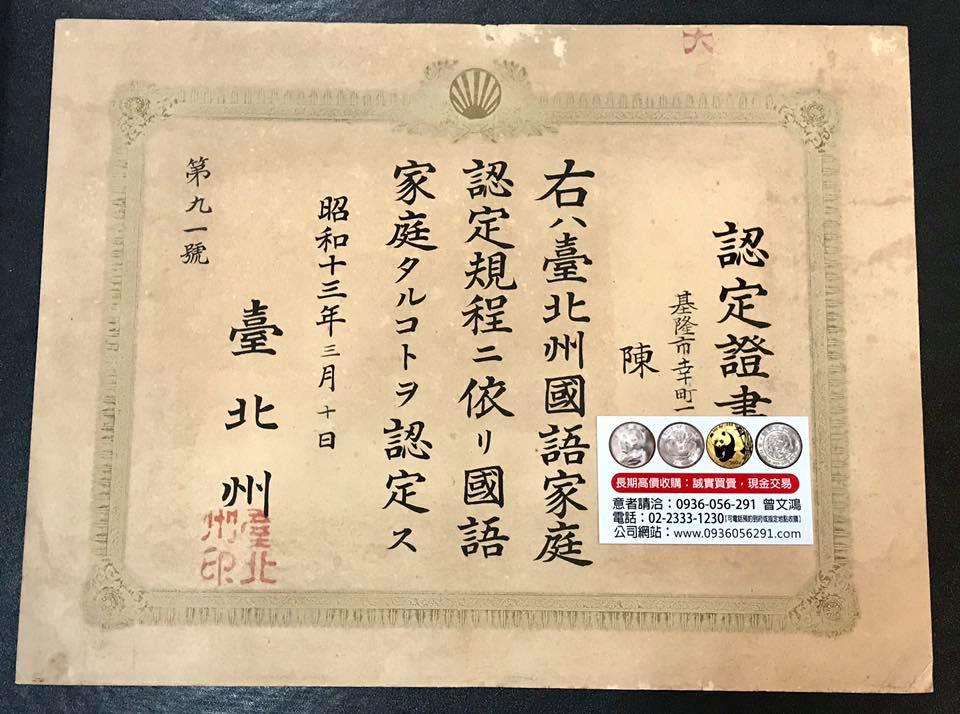 大
認定證書
基隆市幸町一
陳
右ハ臺北州國語家庭
認定規程ニ依リ國語
家庭タルコトヲ認定ス
昭和十三年三月十日
臺北州
臺北州印
第九一號
長期高價收購：誠實買賣，現金交易
意者請洽：0936-056-291 曾文鴻
電話：02-2333-1230【可電話預約到府或指定地點收購】
公司網站：www.0936056291.com